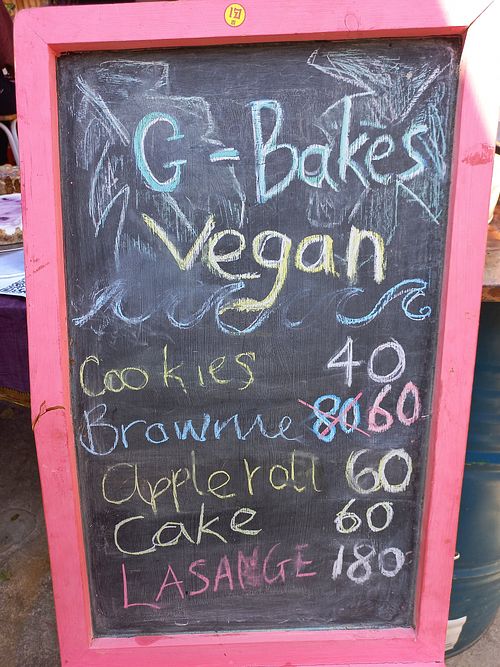 G-Bakes
Vegan
Cookies 40
Brownie 80 60
Apple roll 60
Cake 60
LASANGE 180